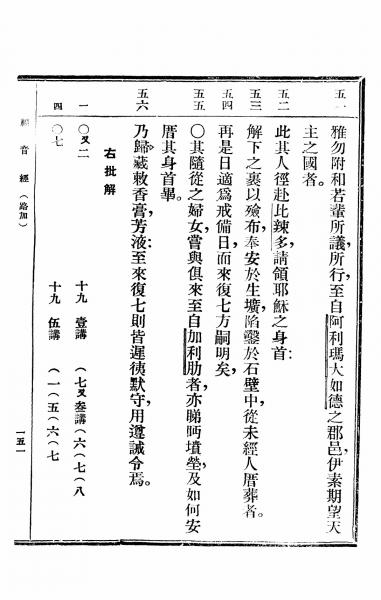 五一
雅勿附和若輩所議、所行、至自阿利瑪大如德之郡邑、伊素期望天
主之國者。
五二
此其人徑赴比辣多、請領耶穌之身首:
五三
解下之裹以殮布、奉安於生壙、陷鑿於石壁中、從未經人厝葬者。
五四
再是日適為戒備日、而來復七方嗣明矣、
五五
〇其隨從之婦女、嘗與俱來至自加利肋者、亦睇眄墳塋、及如何安
厝其身首畢。
五六
乃歸藏敕香膏、芳液:至來復七則皆遲徛默守、用遵誡令焉。
右批解
一 〇又二 十九 壹講 (七又叄講(六(七(八
四 〇七 十九 伍講 (一(五(六(七
福音經(路加)
一五一